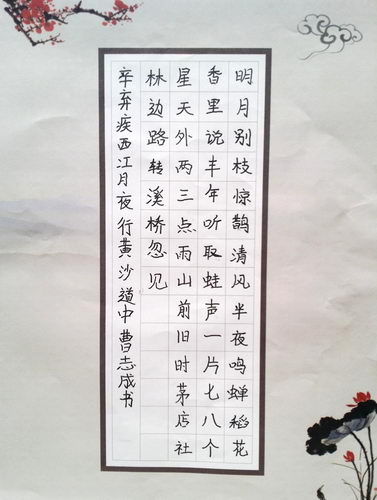 明月别枝惊鹊清风半夜鸣蝉稻花
香里说丰年听取蛙声一片七八个
星天外两三点雨山前旧时茅店社
林边路转溪桥忽见
辛弃疾西江月夜行黄沙道中曹志成书